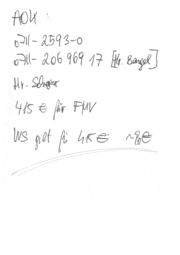 AOK:
0711-2593-0
0711-206 969 17 [Hr. Bangel]
Hr.
415 € für FMV
WS gilt für 415 €